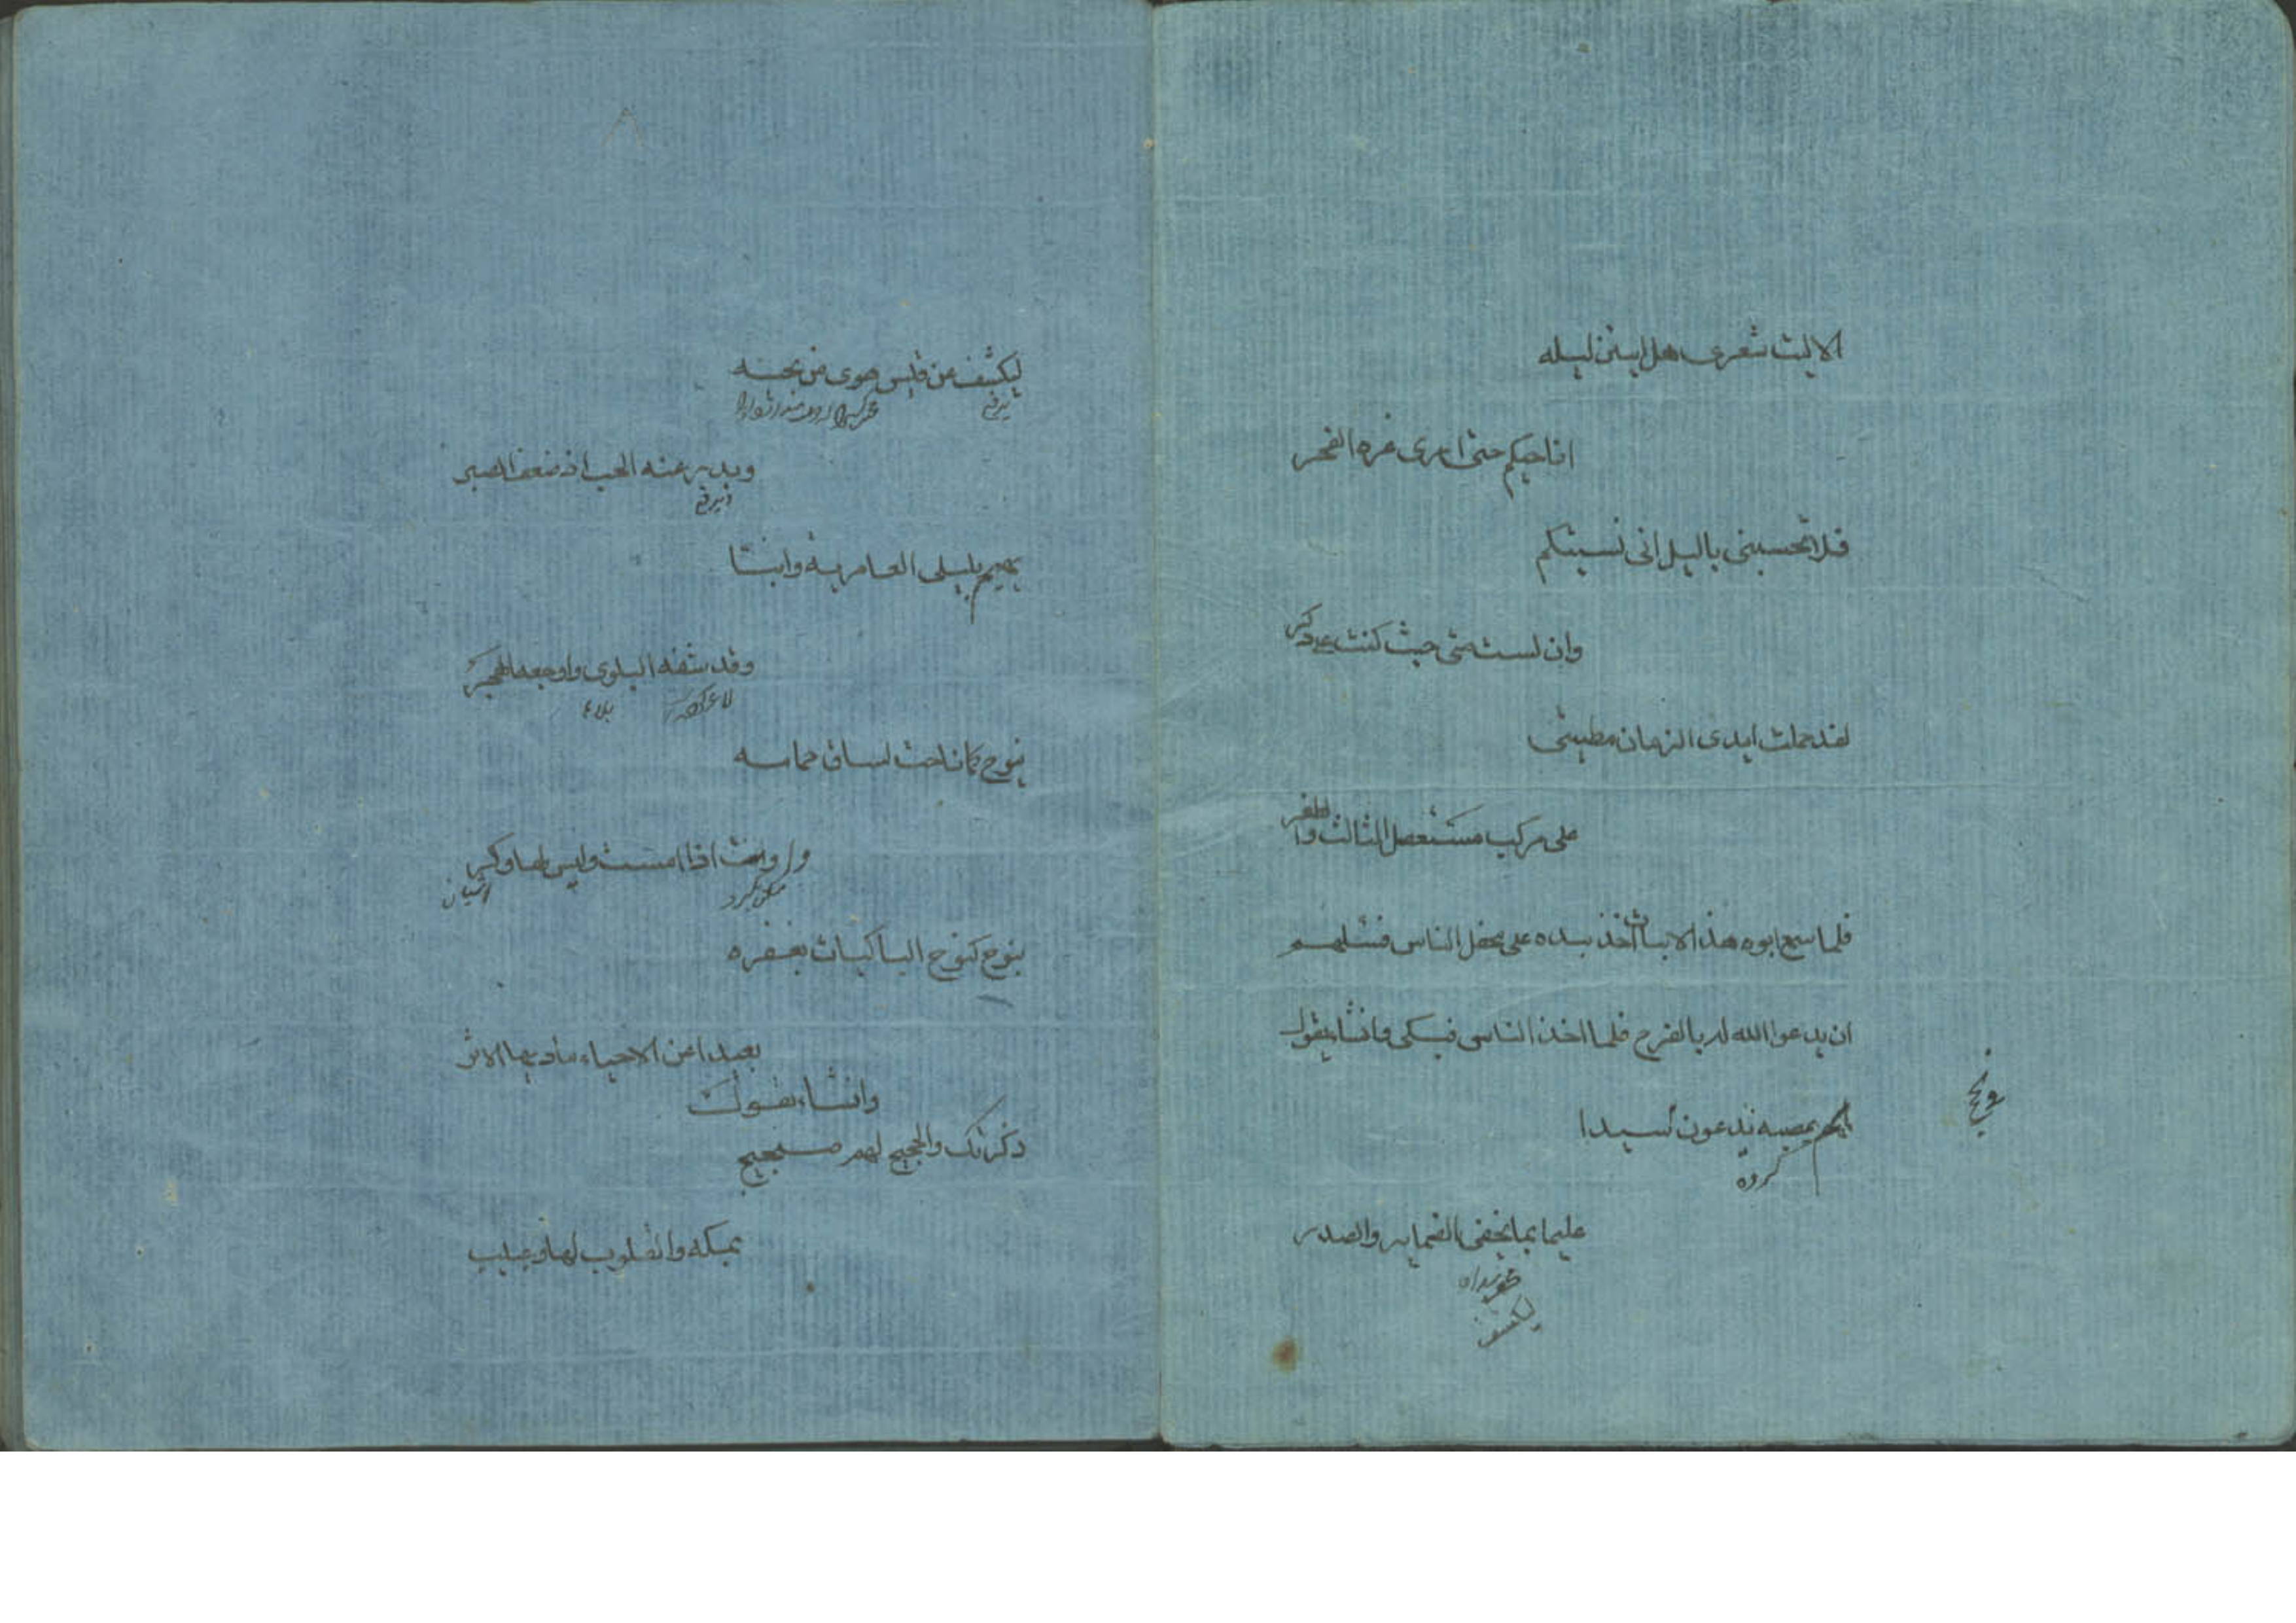 الا ليت شعرى هل ابيتن ليله
اناجيكم حتى ارى غره الفجر
فلا تحسبنى يا ليل انى نسيتكم
وان لست منى حيث كنت على ذكر
لقد حملت ايدى الزمان مطيتى
على مركب مستعصل الثالث والظفر
فلما سمع ابوه هذا الابيات اخذ بيده على محفل الناس فسئلهم
ان يدعوا الله له بالفرج فلما اخذ الناس فبكى وانشا يقول
بعصبه يدعون سيدا
گروه
عليما بما يخفى الضماير والصدر
ليكشف
ليكشف عن قيس هوى من محنه
ويدبر عنه الحب اذ ضعف الصبر
يهيم بليلى العامريه وابنتا
وقد شفه البلوى واوجعه الهجر
لاغر كرده بلاء
ينوح كما ناحت لساق حمامه
اذا امست وليس لها وكر
اشيان
ينوح كنوح الباكيات بغفره
بعيدا عن الاحياء ما دبها الاثر
وانشاء يقول
ذكرتك والحجيج لهم ضجيج
بمكه والقلوب لها وجيب